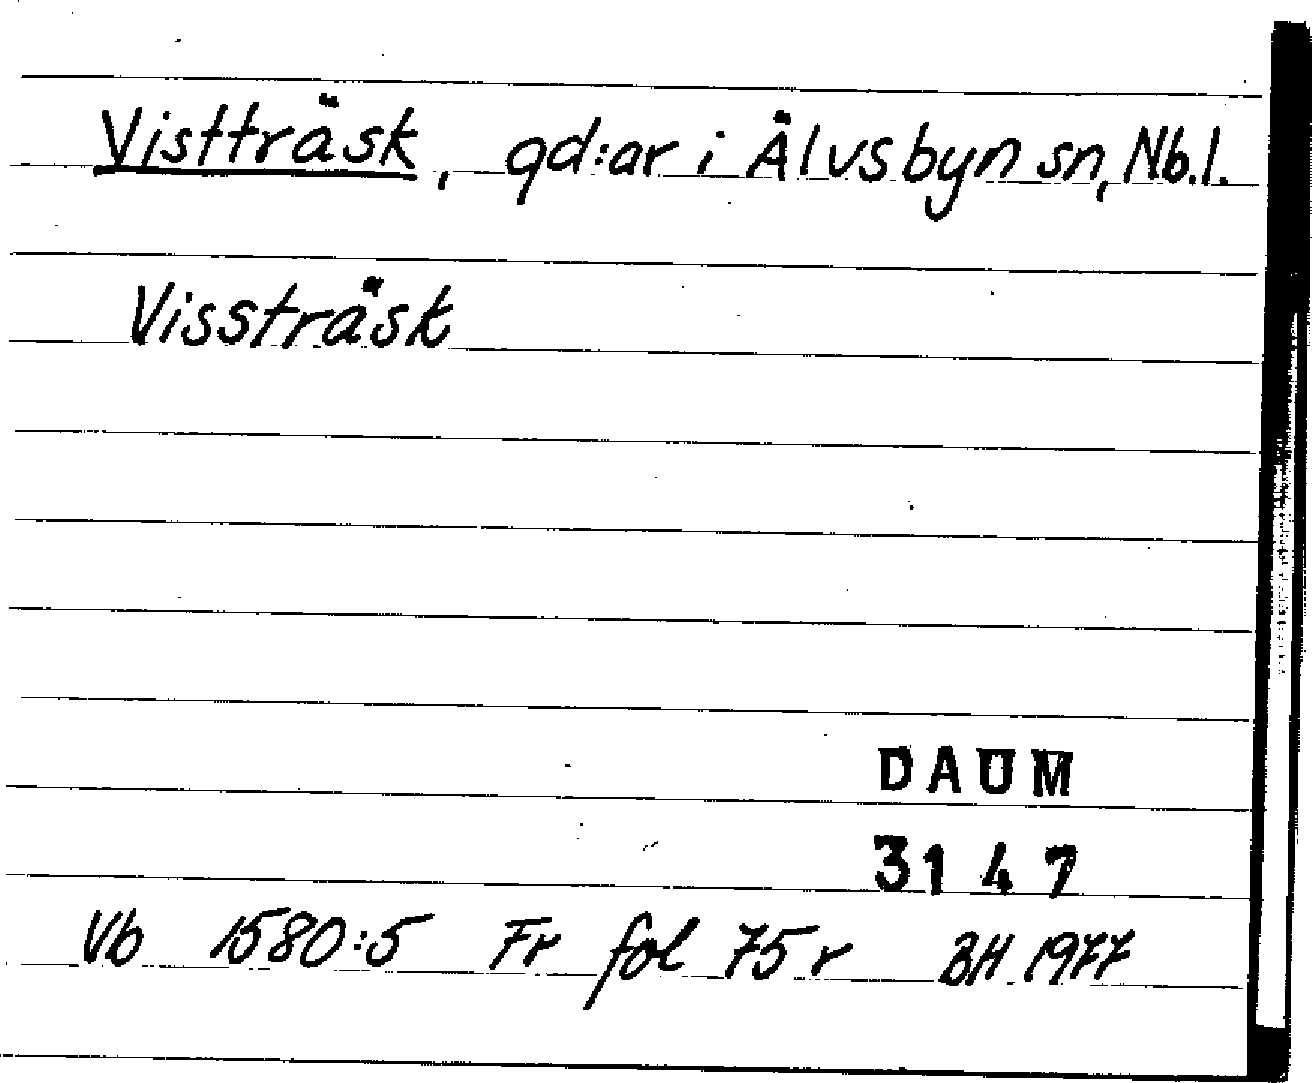 Vistträsk, gd:ar i Älvsbyn sn, Nb.l.
Vissträsk
DAUM
3147
Vb 1580:5 Fr fol 75 r BH 1977